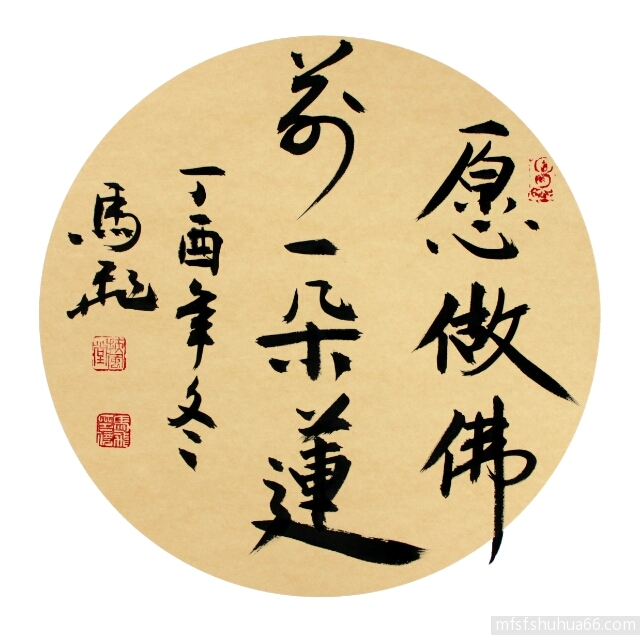 愿做佛
前一朵蓮
丁酉年冬
馬飛
mfsfshuhua66.com